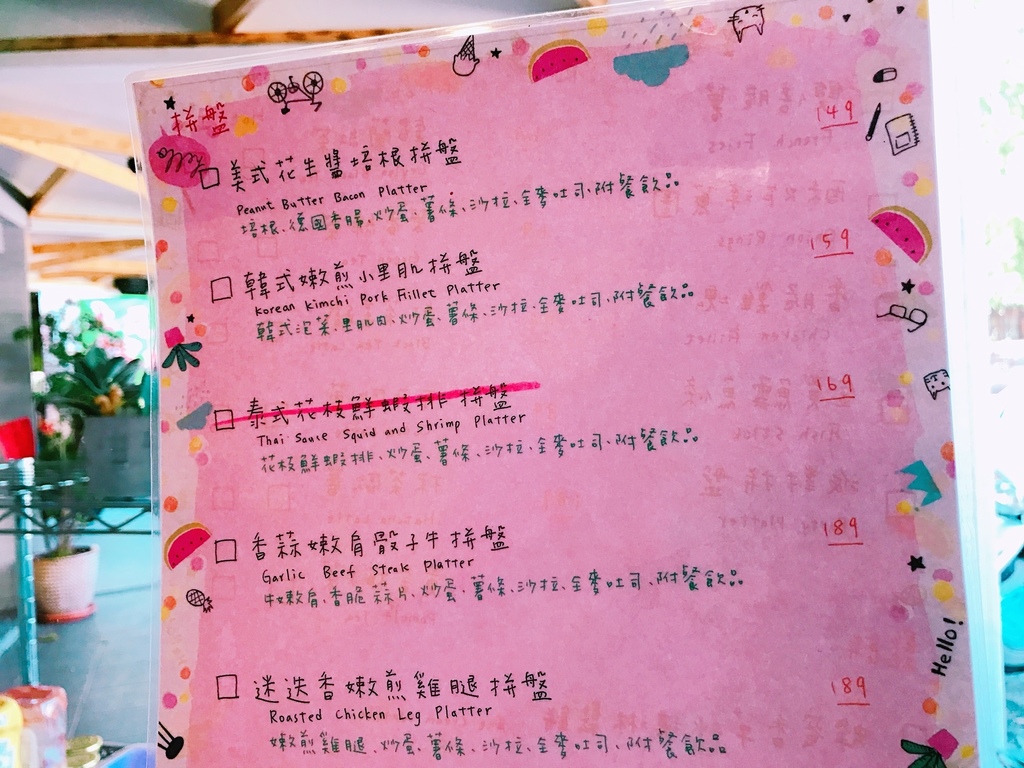 拼盤
hello
美式花生醬培根拼盤 149
Peanut Butter Bacon Platter
培根、德國香腸、炒蛋、薯條、沙拉、全麥吐司、附餐飲品
韓式嫩煎小里肌拼盤 159
Korean Kimchi Pork Fillet Platter
韓式泡菜、里肌肉、炒蛋、薯條、沙拉、全麥吐司、附餐飲品
泰式花枝鮮蝦排 拼盤 169
Thai Sauce Squid and Shrimp Platter
花枝鮮蝦排、炒蛋、薯條、沙拉、全麥吐司、附餐飲品
香蒜嫩肩骰子牛拼盤 189
Garlic Beef Steak Platter
牛嫩肩、香脆蒜片、炒蛋、薯條、沙拉、全麥吐司、附餐飲品
迷迭香嫩煎雞腿拼盤 189
Roasted Chicken Leg Platter
嫩煎雞腿、炒蛋、薯條、沙拉、全麥吐司、附餐飲品
Hello!